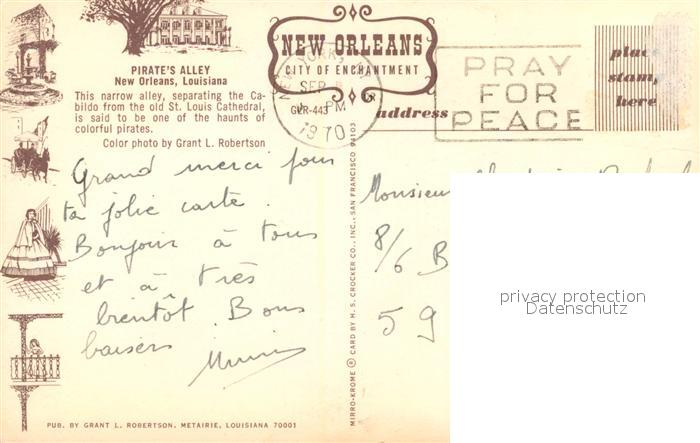 PIRATE'S ALLEY
New Orleans, Louisiana
This narrow alley, separating the Ca-
bildo from the old St. Louis Cathedral,
is said to be one of the haunts of
colorful pirates.
Color photo by Grant L. Robertson
NEW ORLEANS
CITY OF ENCHANTMENT
GVR-443
SEP
PM
1970
PRAY
FOR
PEACE
address
place
stamp
here
Grand merci pour
ta jolie carte.
Bonjour à tous
et à très
bientôt. Bons
baisers
Monsieur
8/6 B
59
privacy protection
Datenschutz
MIRRO-KROME ® CARD BY H. S. CROCKER CO., INC., SAN FRANCISCO 94103
PUB. BY GRANT L. ROBERTSON, METAIRIE, LOUISIANA 70001